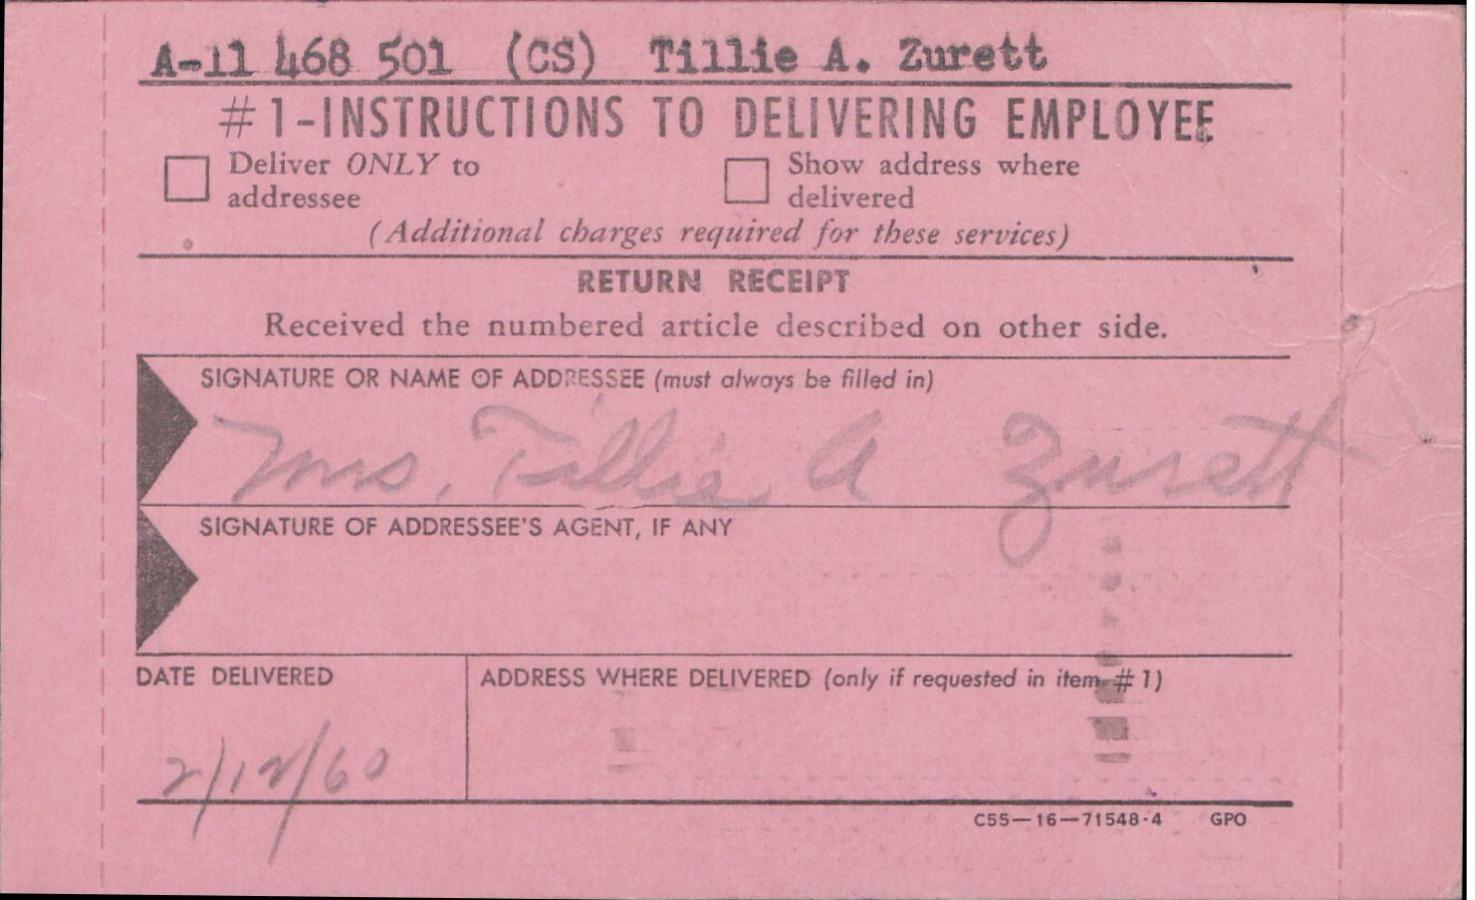 A-11 468 501 (CS) Tillie A. Zurett
#1-INSTRUCTIONS TO DELIVERING EMPLOYEE
Deliver ONLY to addressee
Show address where delivered
(Additional charges required for these services)
RETURN RECEIPT
Received the numbered article described on other side.
SIGNATURE OR NAME OF ADDRESSEE (must always be filled in)
Mrs. Tillie A Zurett
SIGNATURE OF ADDRESSEE'S AGENT, IF ANY
DATE DELIVERED
ADDRESS WHERE DELIVERED (only if requested in item #1)
2/12/60
C55—16—71548-4 GPO